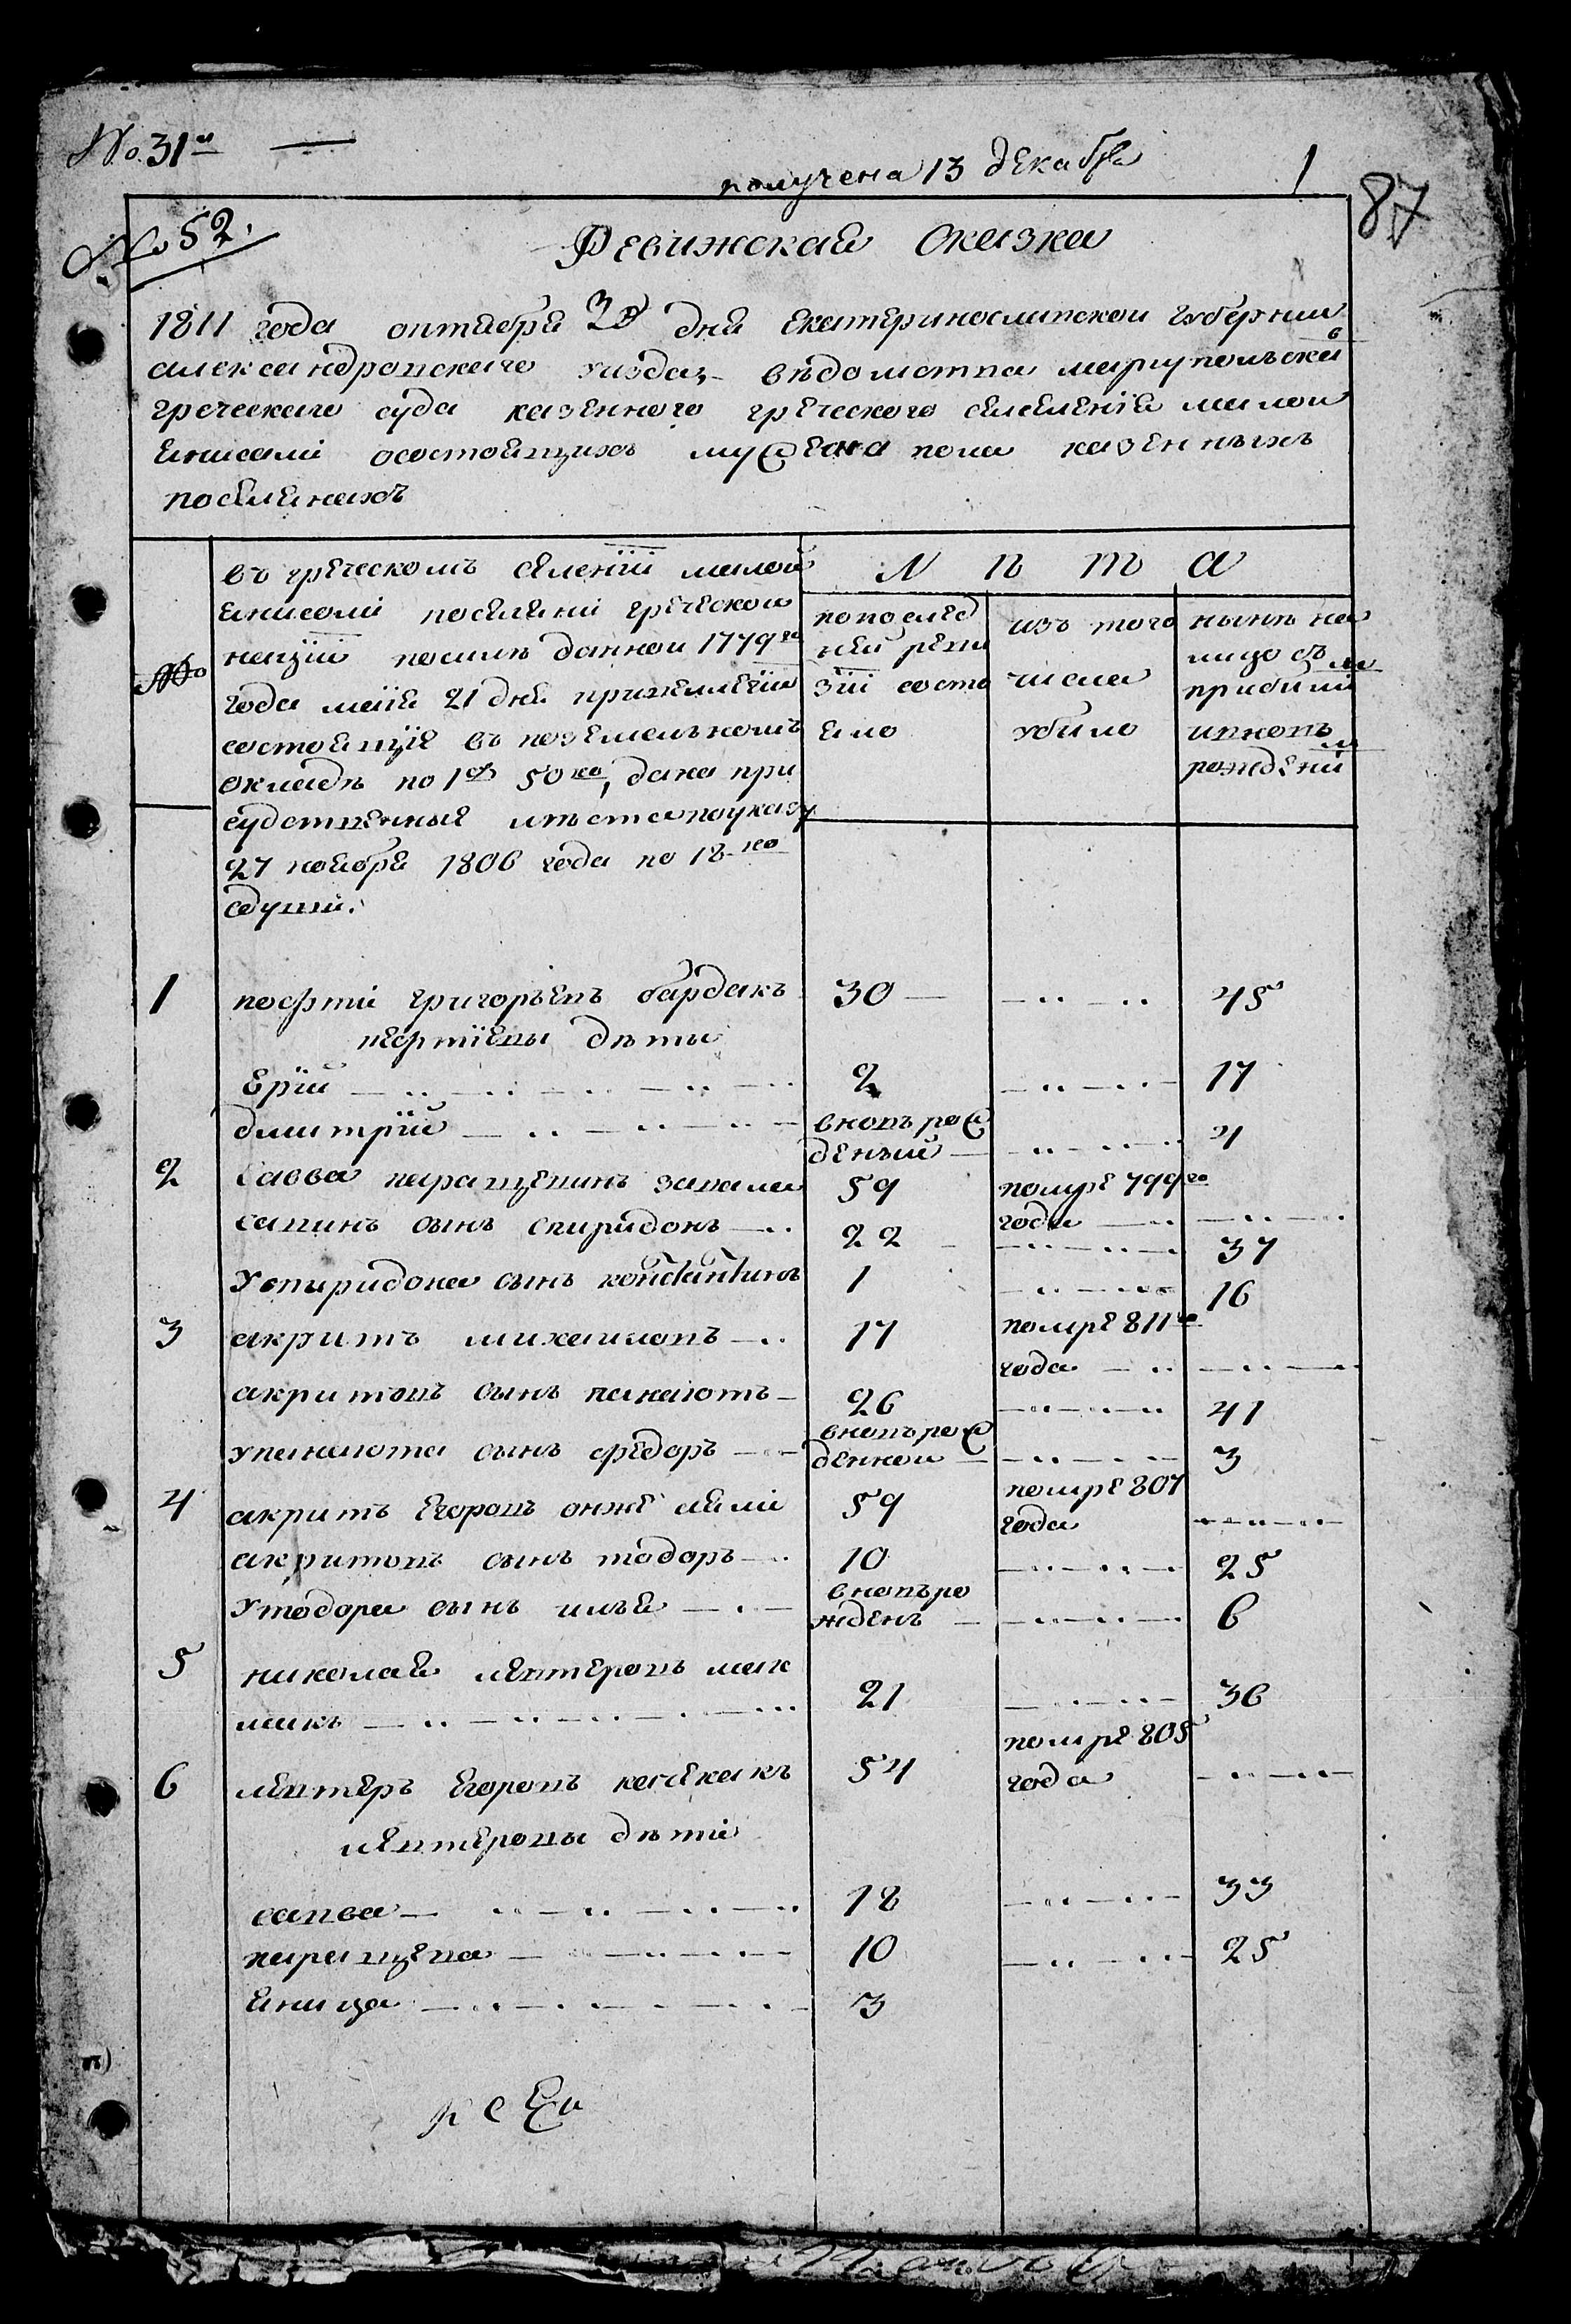 № 31й
получена 13 декабря
1
87
№ 52.
Ревижская Сказка
1811 года октября 30 дня Екатеринославской губернии
александровскаго уезда, вѣдомства мариупольскаго
греческаго суда казенного греческого селения малой
енисали осостоящихъ мужеска пола казенныхъ
поселянахъ
№
въ греческомъ селении малой
енисоли поселяни греческой
нации посилѣ данной 1779го
года маия 21 дня привелегии
состоящие въ поземельномъ
окладѣ по 1р 50ко, дана при
судственные мѣста поуказу
27 ноября 1806 года по 18 ко
сдуши.
Л ѣ т а
попослед
ней реви
зии состо
яло
изъ того
числа
убило
нынѣ на
лицо съ
прибили
ивновь
рождени
1
 the
пефти григорьевъ бардакъ
30
45
пефтиевы дѣты
Ерий
2
17
дмитрий
вновърож
деный
4
2
Савва паращевинъ запала
59
помре 799го
года
савинъ сынъ спиридонъ
22
37
успиридона сынъ константинъ
1
16
3
акритъ михаиловъ
17
помре 811го
года
акритовъ сынъ панаютъ
26
41
упанаюта сынъ федоръ
вновърож
денной
3
4
акритъ Егоровъ онже
59
помре 807
года
акритовъ сынъ тодоръ
10
25
утодора сынъ илья
вновъро
жденъ
6
5
николай левтеровъ мак
макъ
21
36
6
левтеръ Егоровъ качекакъ
54
помре 805
года
левтеровы дѣти
савва
18
33
паращева
10
25
яница
3